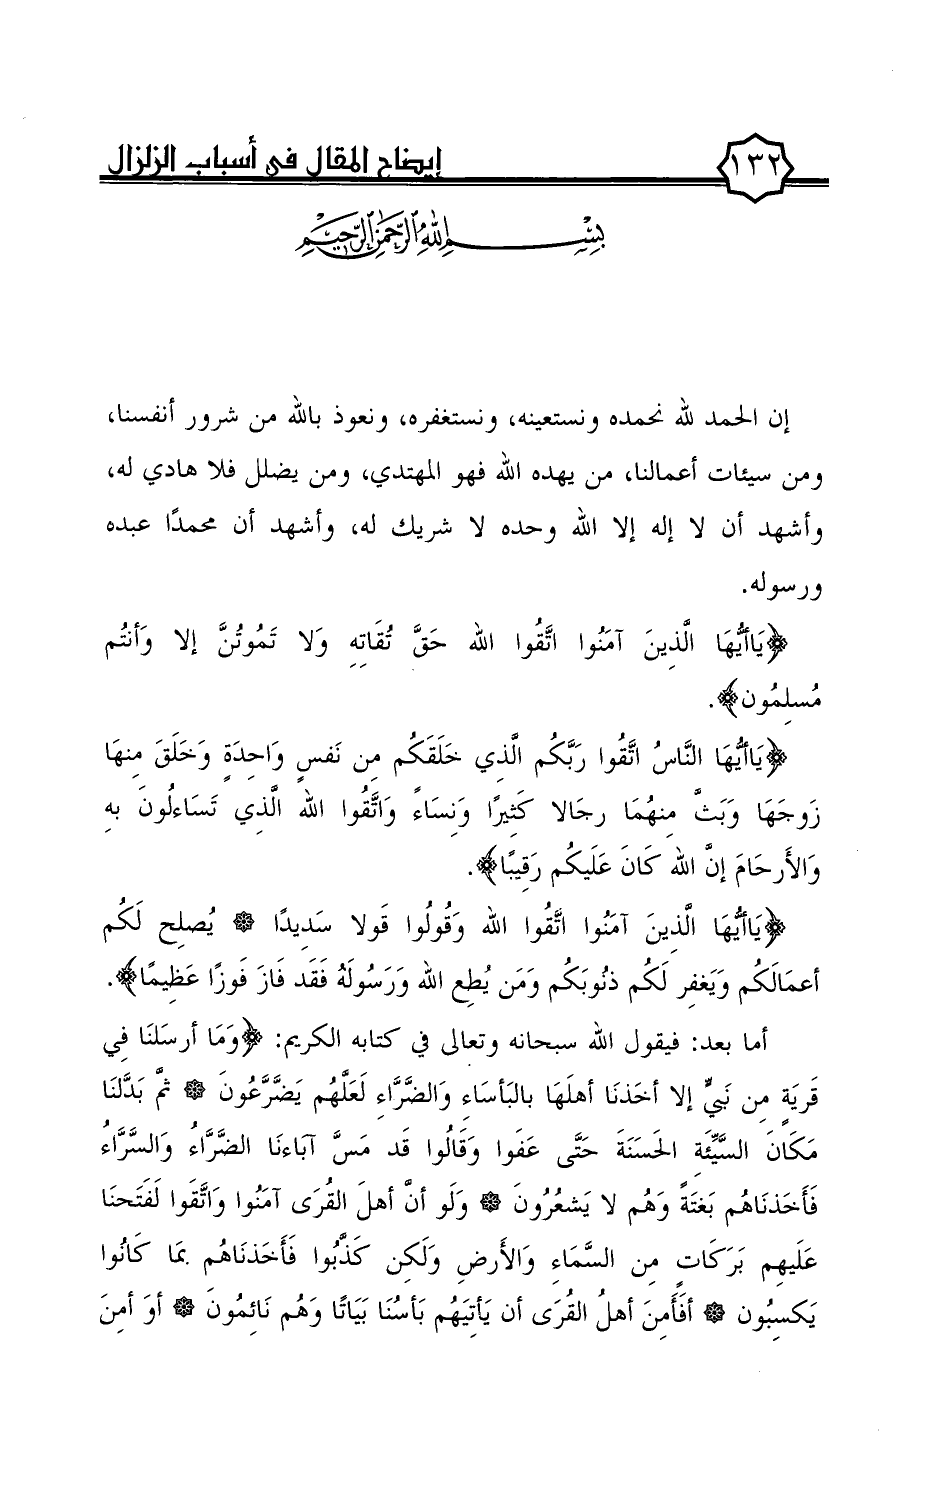 إيضاح المقال في أسباب الزلزال
١٣٢
بسم الله الرحمن الرحيم
إن الحمد لله نحمده ونستعينه، ونستغفره، ونعوذ بالله من شرور أنفسنا،
ومن سيئات أعمالنا، من يهده الله فهو المهتدي، ومن يضلل فلا هادي له،
وأشهد أن لا إله إلا الله وحده لا شريك له، وأشهد أن محمدًا عبده
ورسوله.
﴿يَاأَيُّهَا الَّذِينَ آمَنُوا اتَّقُوا الله حَقَّ تُقَاتِهِ وَلا تَمُوتُنَّ إلا وَأنتُم
مُسلِمُون﴾.
﴿يَاأَيُّهَا النَّاسُ اتَّقُوا رَبَّكُم الَّذِي خَلَقَكُم مِن نَفسٍ وَاحِدَةٍ وَخَلَقَ مِنهَا
زَوجَهَا وَبَثَّ مِنهُمَا رِجَالا كَثِيرًا وَنِسَاءً وَاتَّقُوا الله الَّذِي تَسَاءلُونَ بِهِ
وَالأَرحَامَ إِنَّ الله كَانَ عَلَيكُم رَقِيبًا﴾.
﴿يَاأَيُّهَا الَّذِينَ آمَنُوا اتَّقُوا الله وَقُولُوا قَولا سَدِيدًا ۞ يُصلِح لَكُم
أعمَالَكُم وَيَغفِر لَكُم ذنُوبَكُم وَمَن يُطِعِ الله وَرَسُولَهُ فَقَد فَازَ فَوزًا عَظِيمًا﴾.
أما بعد: فيقول الله سبحانه وتعالى في كتابه الكريم: ﴿وَمَا أرسَلنَا فِي
قَريَةٍ مِن نَبِيٍّ إلا أخَذنَا أهلَهَا بِالبَأسَاءِ وَالضَّرَّاءِ لَعَلَّهُم يَضَّرَّعُونَ ۞ ثمَّ بَدَّلنَا
مَكَانَ السَّيِّئَةِ الحَسَنَةَ حَتَّى عَفَوا وَقَالُوا قَد مَسَّ آبَاءنَا الضَّرَّاءُ وَالسَّرَّاءُ
فَأَخَذنَاهُم بَغتَةً وَهُم لا يَشعُرُونَ ۞ وَلَو أنَّ أهلَ القُرَى آمَنُوا وَاتَّقَوا لَفَتَحنَا
عَلَيهِم بَرَكَاتٍ مِن السَّمَاءِ وَالأَرضِ وَلَكِن كَذَّبُوا فَأَخَذنَاهُم بِمَا كَانُوا
يَكسِبُون ۞ أفَأَمِنَ أهلُ القُرَى أن يَأتِيَهُم بَأسُنَا بَيَاتًا وَهُم نَائِمُونَ ۞ أوَ أمِنَ